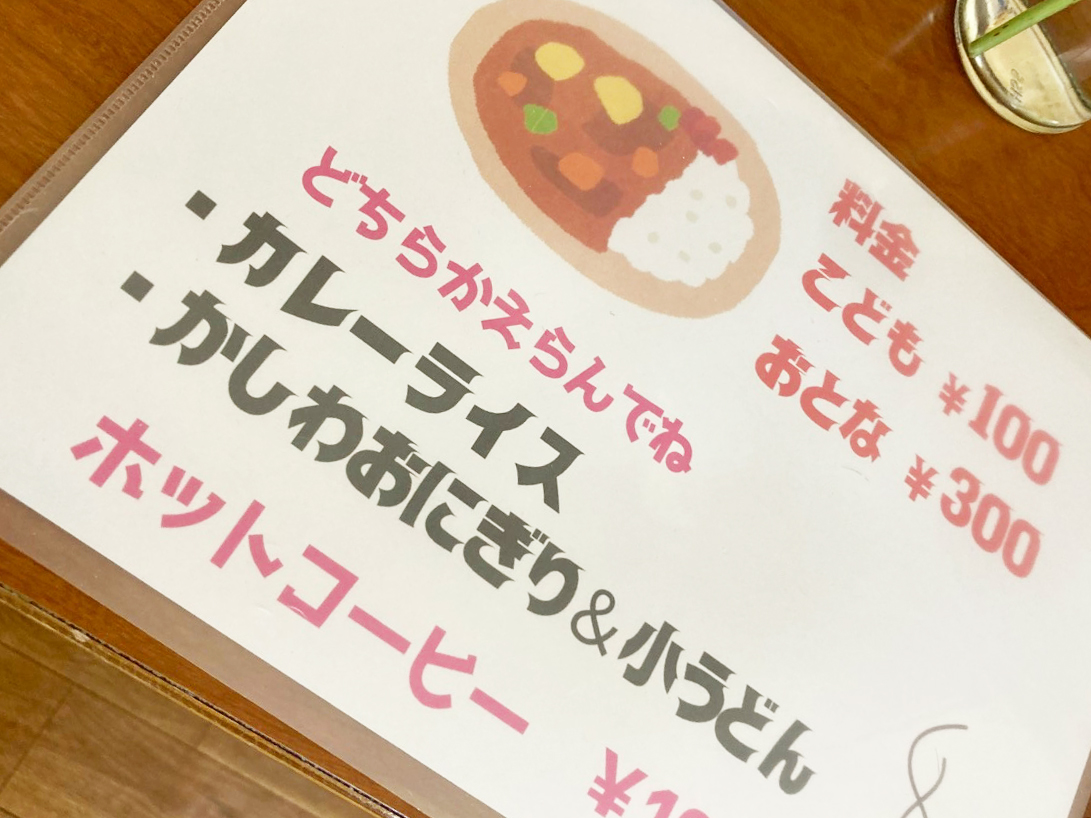 どちらかえらんでね
・カレーライス
・かしわおにぎり&小うどん
料金
こども ¥100
おとな ¥300
ホットコーヒー